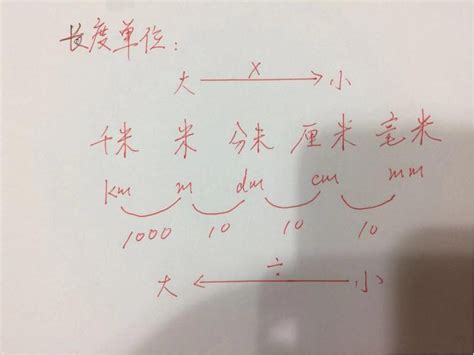 长度单位：
大 × 小
千米 米 分米 厘米 毫米
km m dm cm mm
1000 10 10 10
÷
大 小